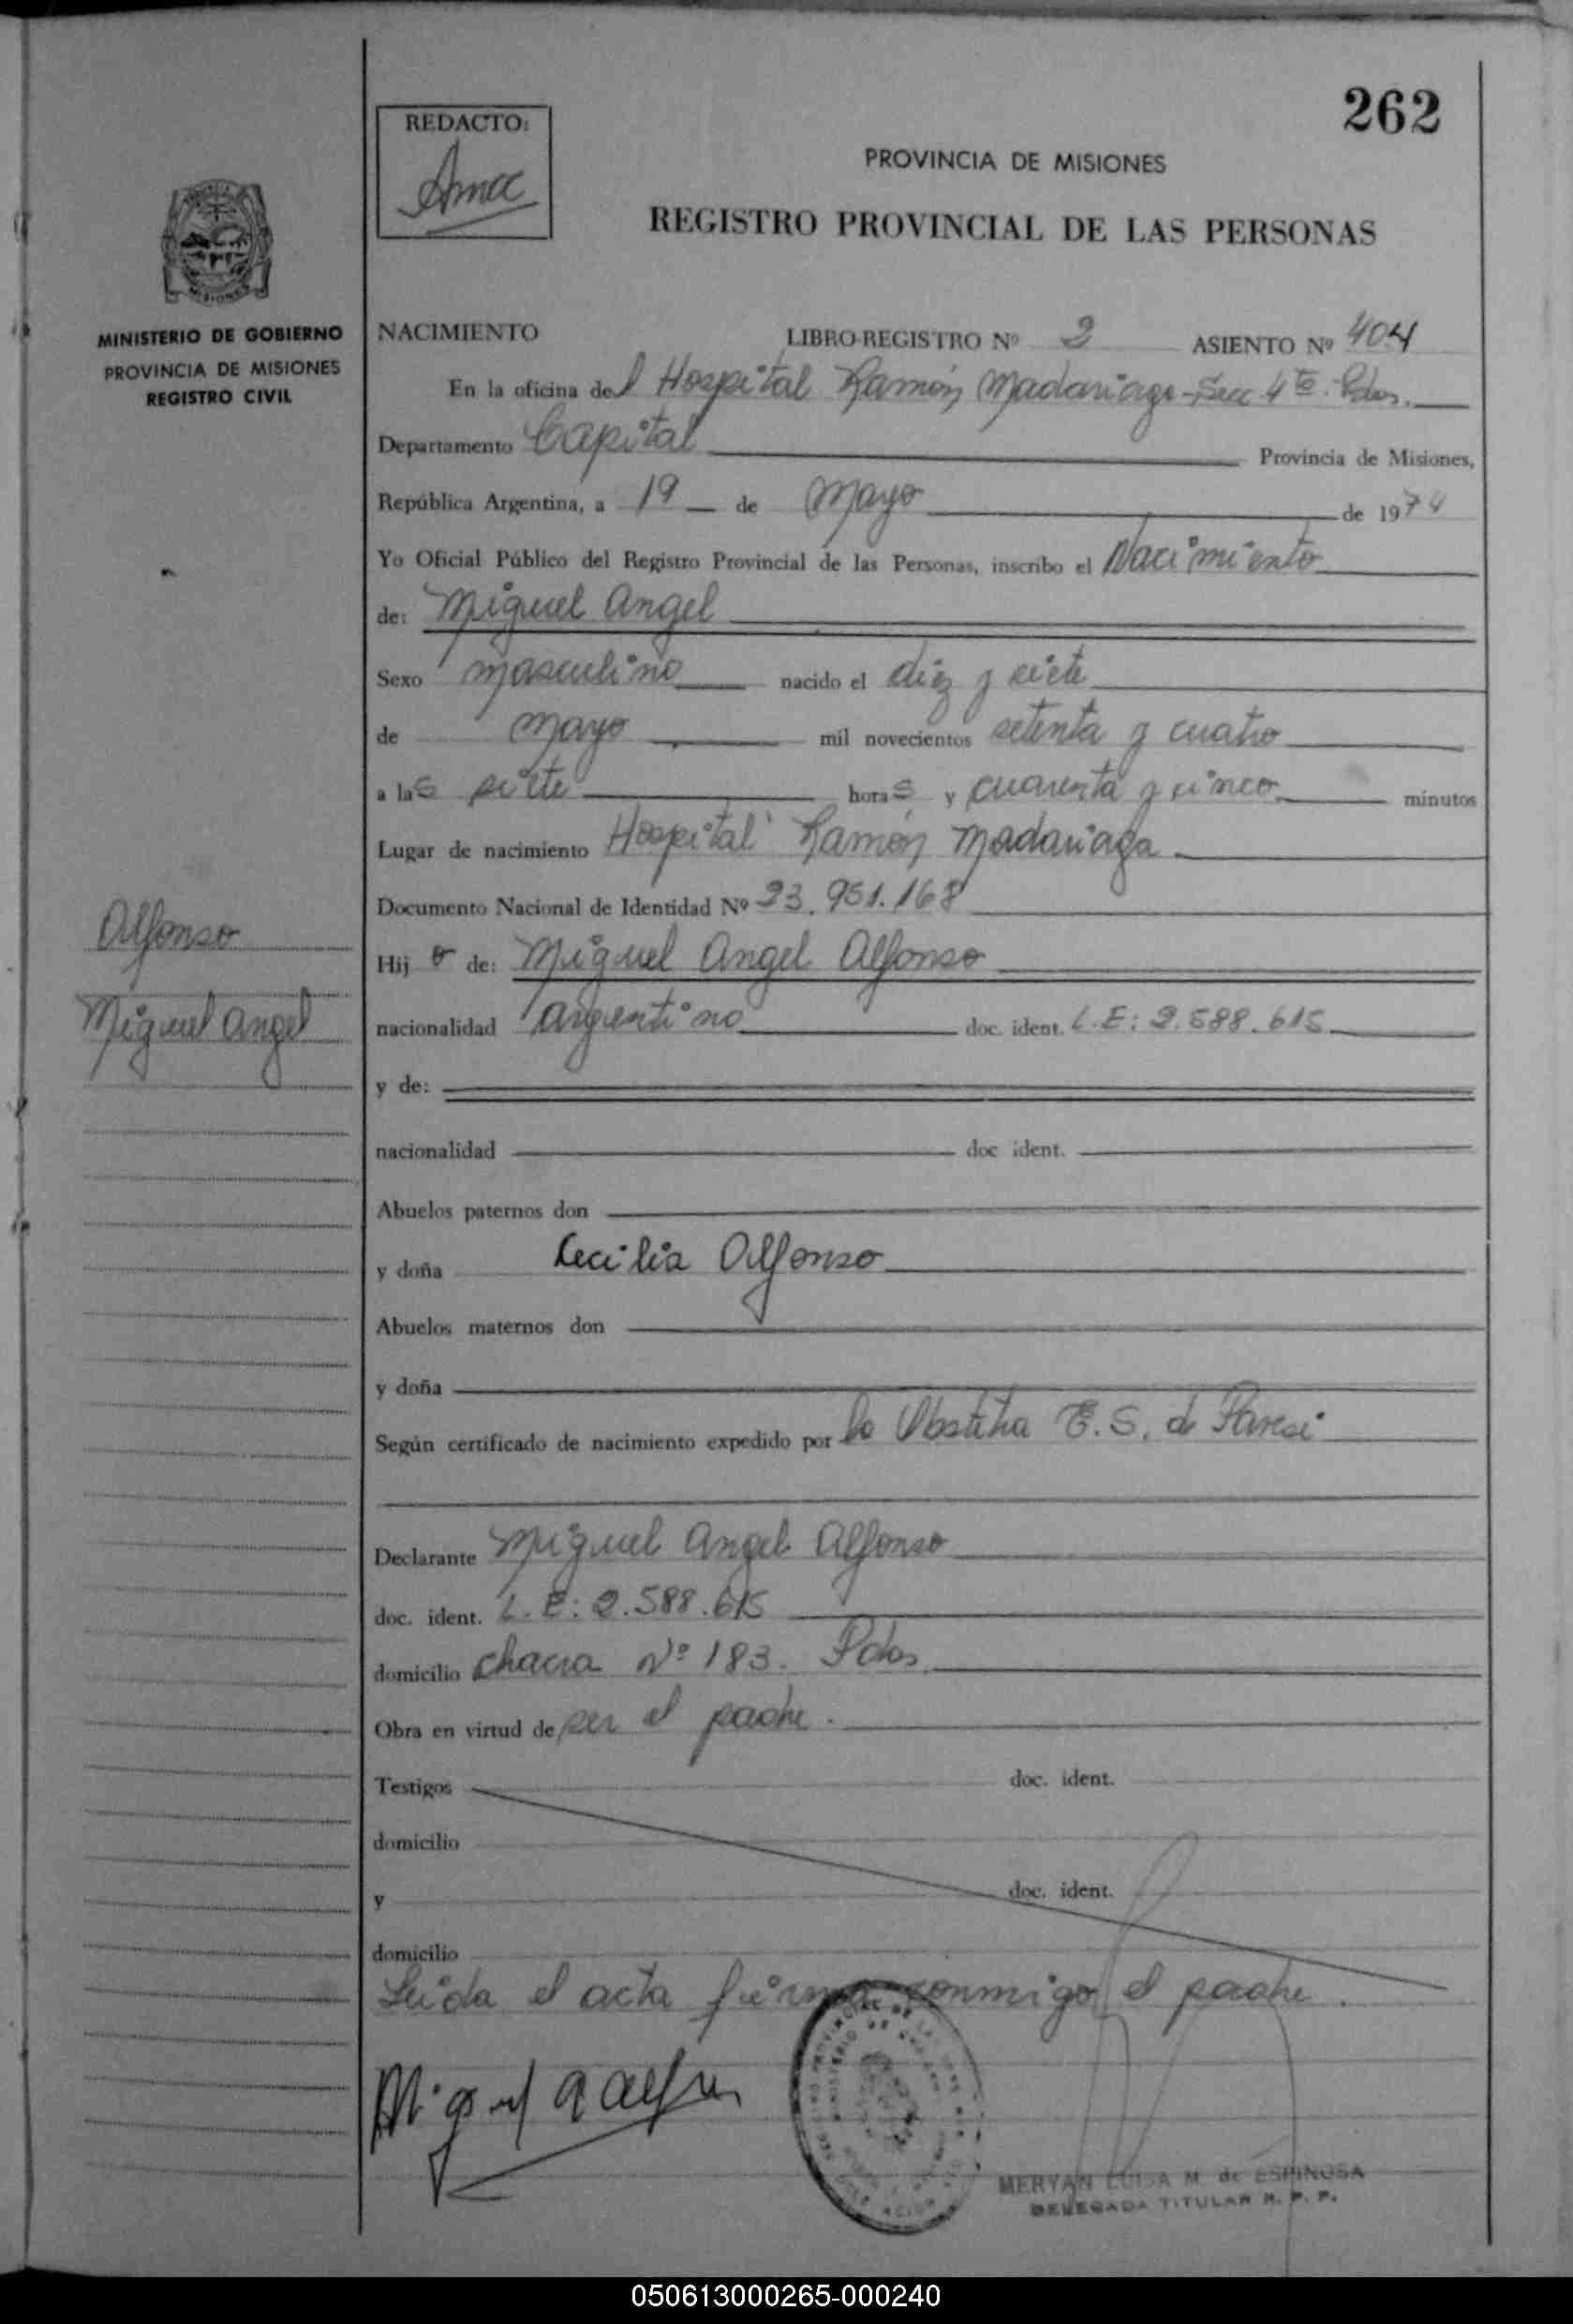 262
REDACTO:
PROVINCIA DE MISIONES
REGISTRO PROVINCIAL DE LAS PERSONAS
MISIONES
MINISTERIO DE GOBIERNO
PROVINCIA DE MISIONES
REGISTRO CIVIL
NACIMIENTO LIBRO-REGISTRO Nº 2 ASIENTO Nº 404
En la oficina del Hospital Ramón Madariaga - Secc 4ta Pdas.
Departamento Capital Provincia de Misiones,
República Argentina, a 19 de Mayo de 1974
Yo Oficial Público del Registro Provincial de las Personas, inscribo el Nacimiento
de: Miguel Angel
Sexo masculino nacido el diez y siete
de Mayo mil novecientos setenta y cuatro
a las siete horas y cuarenta y cinco minutos
Lugar de nacimiento Hospital Ramón Madariaga
Documento Nacional de Identidad Nº 23.951.168
Alfonso
Miguel Angel
Hijo de: Miguel Angel Alfonso
nacionalidad argentino doc. ident. L.E: 2.588.615
y de:
nacionalidad doc ident.
Abuelos paternos don
y doña Cecilia Alfonso
Abuelos maternos don
y doña
Según certificado de nacimiento expedido por la Obstetra E.S. de
Declarante Miguel Angel Alfonso
doc. ident. L.E: 2.588.615
domicilio Chacra Nº 183. Pdas.
Obra en virtud de ser el padre.
Testigos doc. ident.
domicilio
y doc. ident.
domicilio
Leída el acta firma conmigo el padre.
MERYAN LUISA M. de ESPINOSA
DELEGADA TITULAR R. P. P.
050613000265-000240